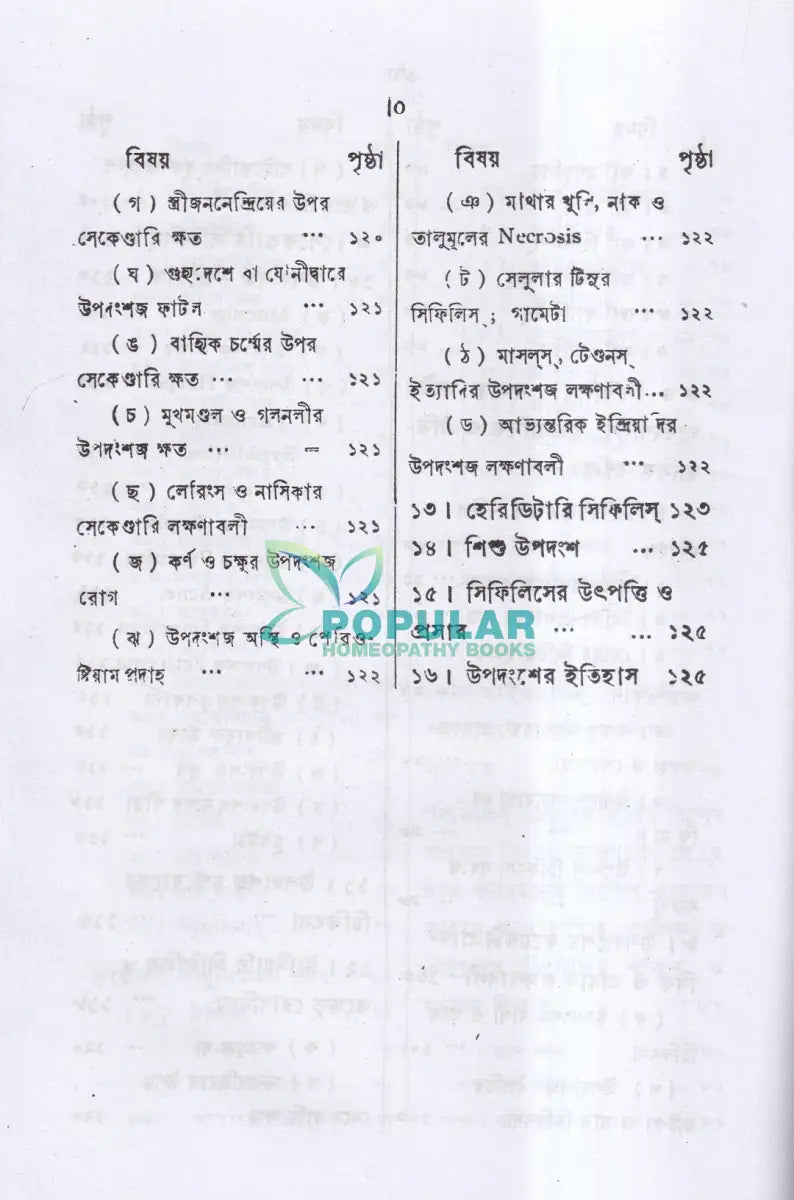 ।০
বিষয় পৃষ্ঠা
( গ ) স্ত্রীজননেন্দ্রিয়ের উপর
সেকেণ্ডারি ক্ষত ··· ১২০
( ঘ ) গুহ্যদেশে বা যোনীদ্বারে
উপদংশজ ফাটল ··· ১২১
( ঙ ) বাহ্যিক চর্ম্মের উপর
সেকেণ্ডারি ক্ষত ··· ··· ১২১
( চ ) মুখমণ্ডল ও গলনলীর
উপদংশজ ক্ষত ··· – ১২১
( ছ ) লেরিংস ও নাসিকার
সেকেণ্ডারি লক্ষণাবলী ··· ১২১
( জ ) কর্ণ ও চক্ষুর উপদংশজ
রোগ ··· ১২১
( ঝ ) উপদংশজ অস্থি ও পেরিও-
ষ্টিয়াম প্রদাহ ··· ··· ১২২
বিষয় পৃষ্ঠা
( ঞ ) মাথার খুলি, নাক ও
তালুমূলের Necrosis ··· ১২২
( ট ) সেলুলার টিসুর
সিফিলিস্ ; গামেটা ··· ১২২
( ঠ ) মাসল্‌স্, টেণ্ডনস্
ইত্যাদির উপদংশজ লক্ষণাবলী... ১২২
( ড ) আভ্যন্তরিক ইন্দ্রিয়াদির
উপদংশজ লক্ষণাবলী ··· ১২২
১৩। হেরিডিটারি সিফিলিস্ ১২৩
১৪। শিশু উপদংশ ... ১২৫
১৫। সিফিলিসের উৎপত্তি ও
প্রসার ··· ... ১২৫
১৬। উপদংশের ইতিহাস ১২৫
POPULAR
HOMEOPATHY BOOKS